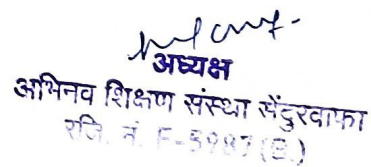 अध्यक्ष
अभिनव शिक्षण संस्था सेंदुरवाफा
रजि. नं. F-5987(B.)